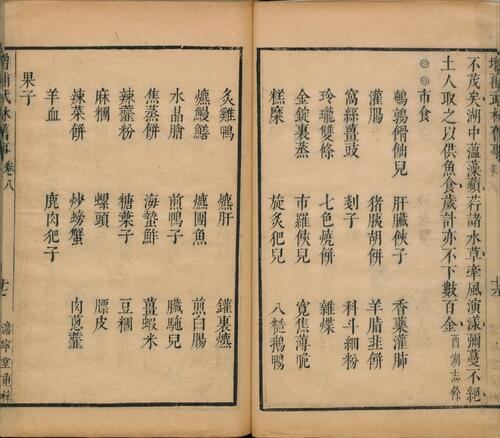 不茂矣湖中溫藻蘋荇諸水草牽風演漾彌蔓不絕
土人取之以供魚食歲計亦不下數百金 西湖志餘
◎◎市食
鵪鶉餶飿兒　肝臟鋏子　香藥灌肺
灌腸　豬胰胡餅　羊脂韭餅
窩絲薑豉　剗子　科斗細粉
玲瓏雙條　七色燒餅　雜煠
金錠裹蒸　市羅兒　寬焦薄脆
糕糜　旋炙犯兒　八鵝鴨
炙雞鴨　爊肝　罐裏爊
爊鰻鱔　爊團魚　煎白腸
水晶膾　煎鴨子　臟駝兒
焦蒸餅　海蟄鮓　薑蝦米
辣虀粉　糖葉子　豆糰
麻糰　螺頭　膘皮
辣菜餅　炒螃蟹　肉葱虀
羊血　鹿肉犯子
果子
增補武林舊事　卷八　十二　澹寧堂重梓